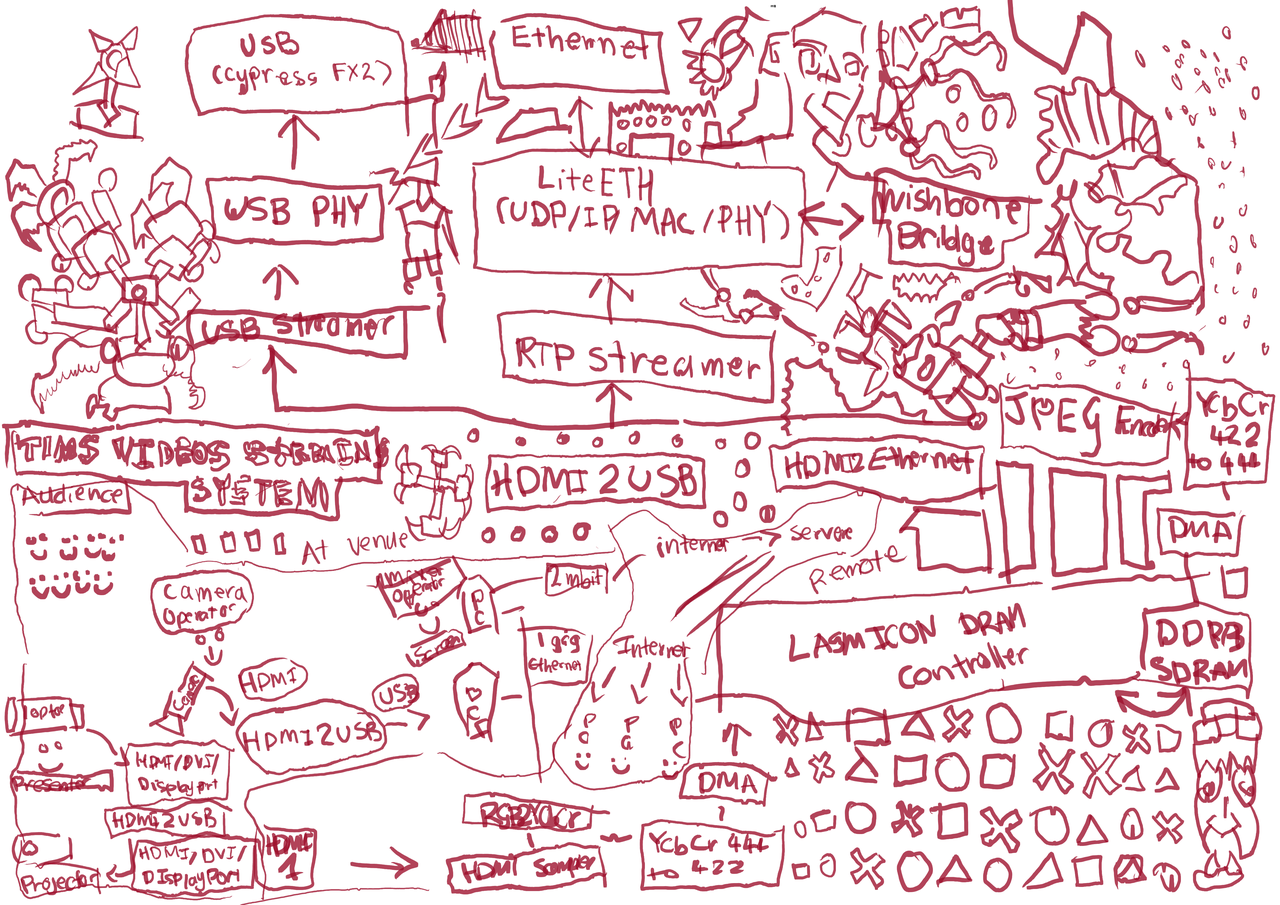 USB
(Cypress FX2)
Ethernet
USB PHY
LiteETH
(UDP/IP/MAC/PHY)
Wishbone
Bridge
USB Streamer
RTP Streamer
JPEG Encoder
YCbCr
422
to 444
TIMS VIDEOS
SYSTEM
HDMI2USB
HDMI2Ethernet
Audience
At Venue
internet
servers
Remote
DMA
Camera
Operator
Operator
PC
2mbit
Screen
1 gig
Ethernet
Internet
LASMICON DRAM
Controller
DDR3
SDRAM
HDMI
USB
HDMI2USB
PC
PC
PC
PC
Presenter
HDMI/DVI/
Displayport
HDMI2USB
HDMI/DVI/
DISplayPORT
Projector
HDMI
1
DMA
HDMI Sampler
YCbCr 444
to 422